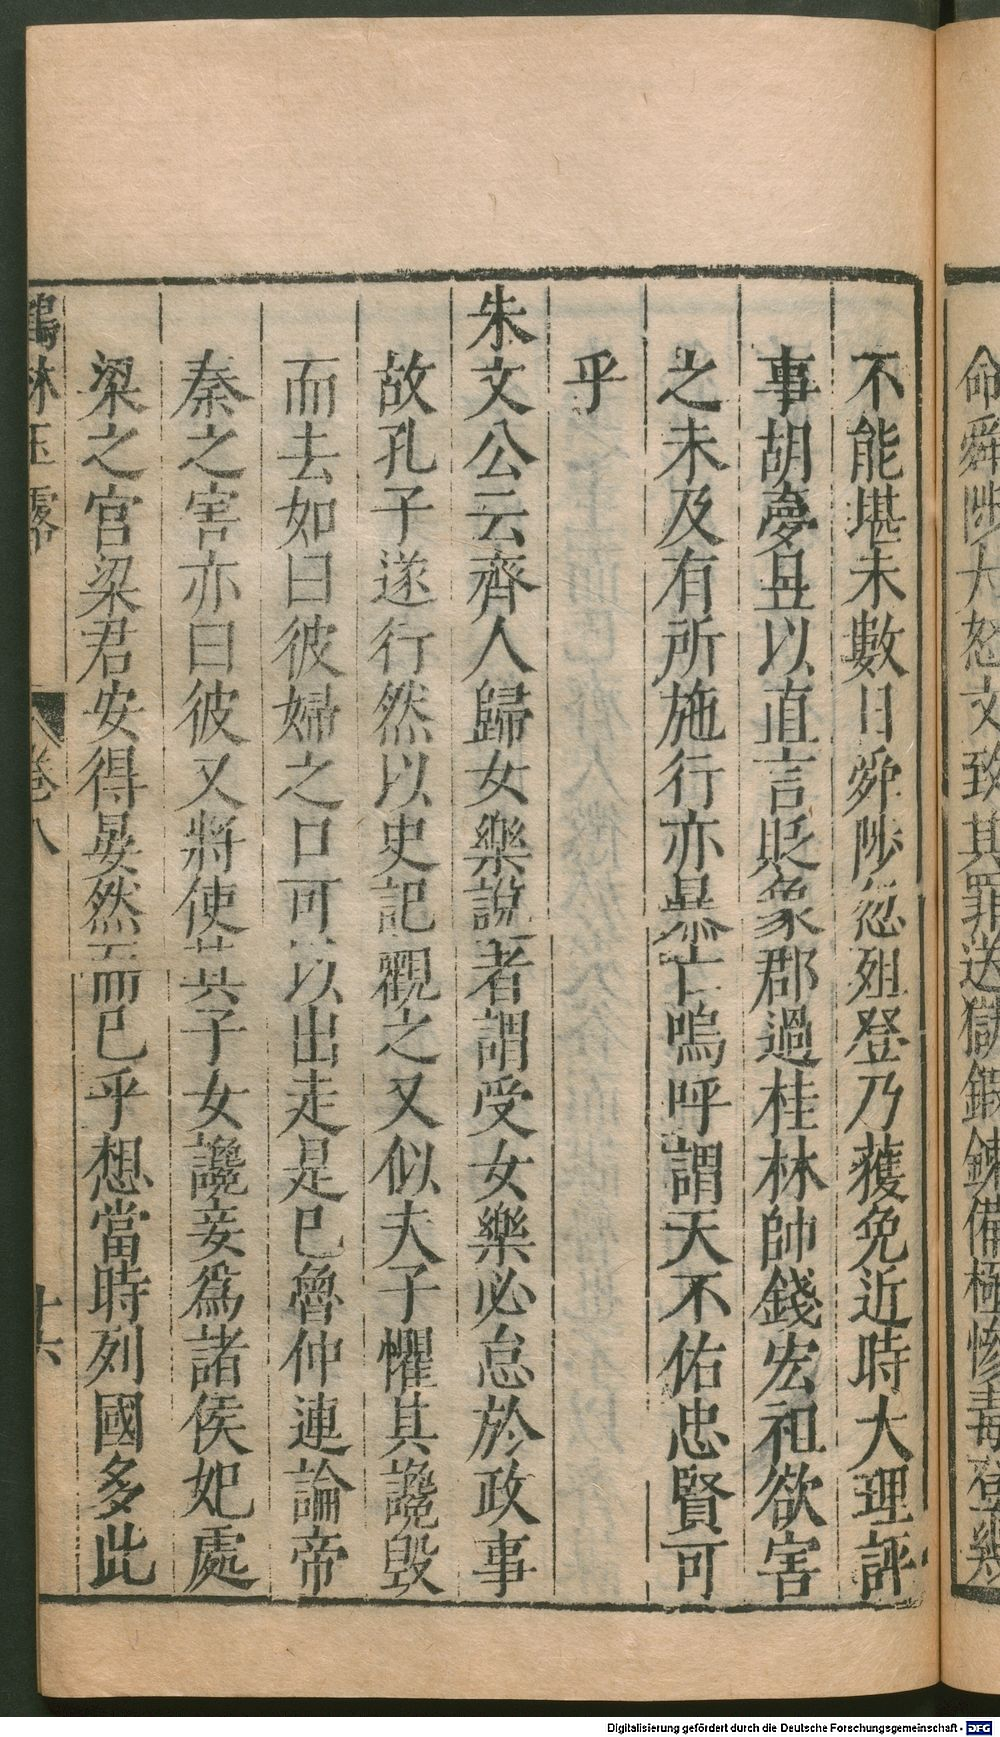 命舜陟大怒文致其罪送獄鍛鍊備極慘毒登幾
不能堪未數日舜陟忽殂登乃獲免近時大理評
事胡夢昱以直言貶象郡過桂林帥錢宏祖欲害
之未及有所施行亦暴亡嗚呼謂天不佑忠賢可
乎
朱文公云齊人歸女樂說者謂受女樂必怠於政事
故孔子遂行然以史記觀之又似夫子懼其讒毀
而去如曰彼婦之口可以出走是已魯仲連論帝
秦之害亦曰彼又將使其子女讒妾爲諸侯妃處
梁之宮梁君安得晏然而已乎想當時列國多此
鶴林玉露 卷八 十六
Digitalisierung gefördert durch die Deutsche Forschungsgemeinschaft - DFG